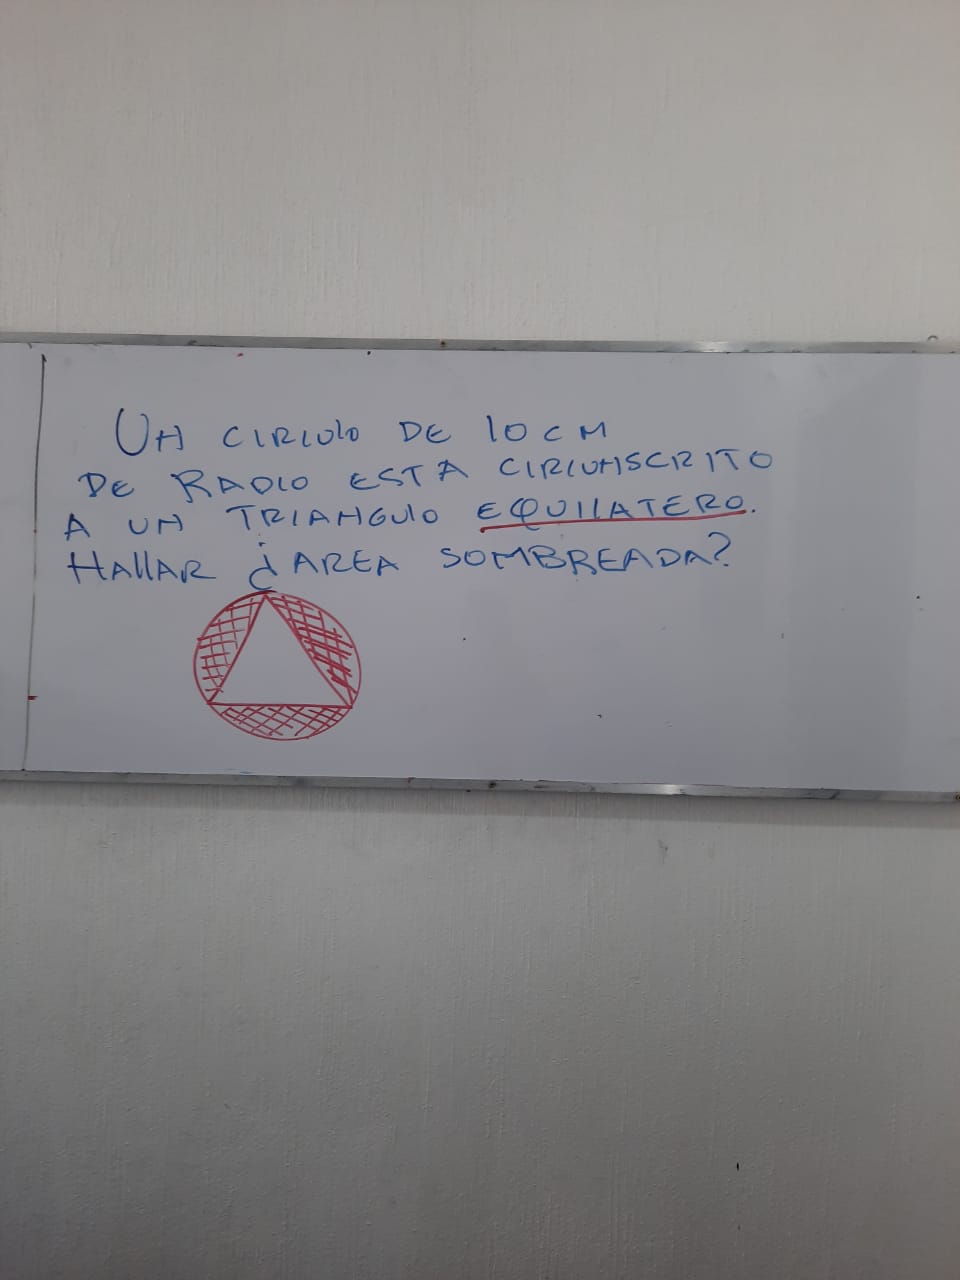 UN CIRCULO DE 10 CM
DE RADIO ESTA CIRCUNSCRITO
A UN TRIANGULO EQUILATERO.
HALLAR ¿AREA SOMBREADA?